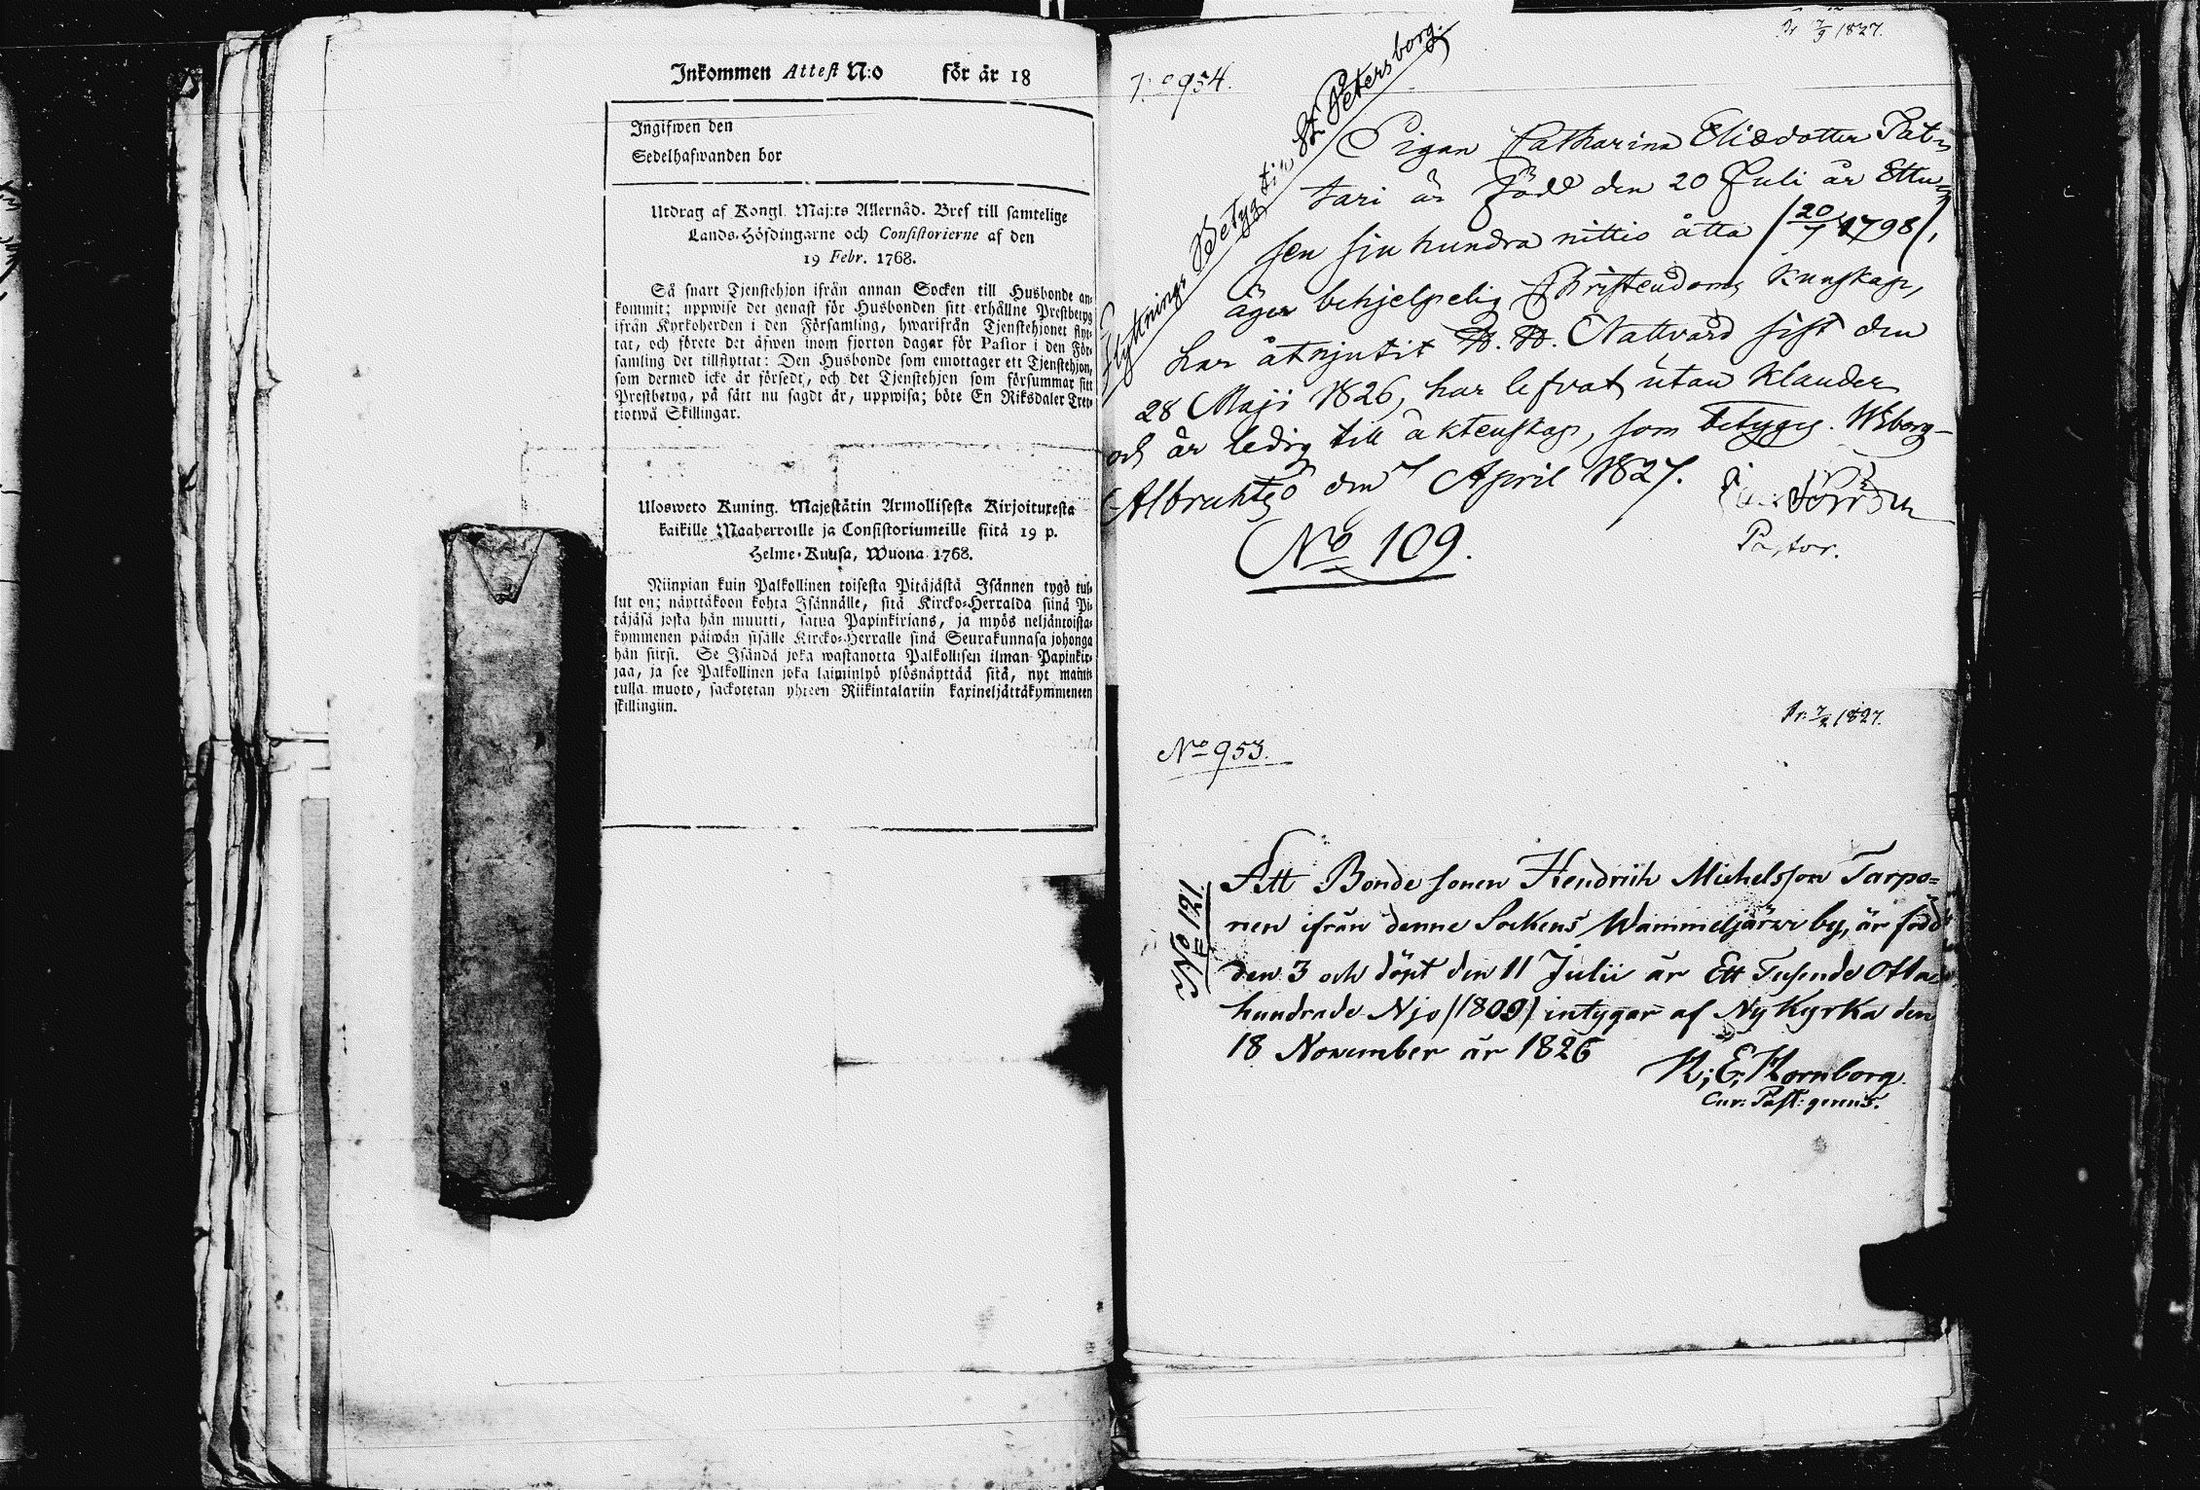 Inkommen Attest N:o för år 18
Ingifwen den
Sedelhafwanden bor
Utdrag af Kongl. Maj:ts Allernåd. Bref till samtelige
Lands-Höfdingarne och Consistorierne af den
19 Febr. 1768.
Så snart Tjenstehjon ifrån annan Socken till Husbonde an-
kommit; uppwise det genast för Husbonden sitt erhållne Prestbetyg
ifrån Kyrkoherden i den Församling, hwarifrån Tjenstehjonet flyt-
tat, och förete det äfwen inom fjorton dagar för Pastor i den För-
samling det tillflyttat: Den Husbonde som emottager ett Tjenstehjon,
som dermed icke är försedt, och det Tjenstehjon som försummar sitt
Prestbetyg, på sätt nu sagdt är, uppwisa; böte En Riksdaler Tret-
tiotwå Skillingar.
Ulosweto Kuning. Majestätin Armollisesta Kirjoituxesta
kaikille Maaherroille ja Consistoriumeille siitä 19 p.
Helme-Kuusa, Wuona 1768.
Niinpian kuin Palkollinen toisesta Pitäjästä Isännen tygö tul-
lut on; näyttäkoon kohta Isännälle, sitä Kircko-Herralda siinä Pi-
täjäsä josta hän muutti, satua Papinkirjans, ja myös neljäntoista-
kymmenen päiwän sisälle Kircko-Herralle sinä Seurakunnasa johonga
hän siirsi. Se Isändä joka wastanotta Palkollisen ilman Papinkir-
jaa, ja see Palkollinen joka laiminlyö ylösnäyttää sitä, nyt mainit-
tulla muoto, sackotetan yhteen Riikintalariin kaxineljättäkymmeneen
skillingiin.
7/9 1827.
954.
Flyttnings Betyg till St. Petersborg.
Pigan Catharina Eliædotter Pat-
tari är född den 20 Juli år Ettu-
sen sju hundra nittio åtta (20/7 1798),
äger behjelpelig Christendoms kunskap,
har åtnjutit H. H. Nattvard sist den
28 Maji 1826, har lefvat utan klander
och är ledig till äktenskap, som betyges. Wiborg
den 7 April 1827.
Pastor.
No 109.
7/2 1827.
No 953.
No 121.
Att Bonde sonen Hendrich Michelsson Tarpo=
nen ifrån denne Sockens Wammeljärwi by, är född
den 3 och döpt den 11 Julii år Ett Tusende Otta-
hundrade Njo (1809) intygar af Ny Kyrka den
18 November år 1826
K; E; Hornborg.
Cur: Past: gerens.